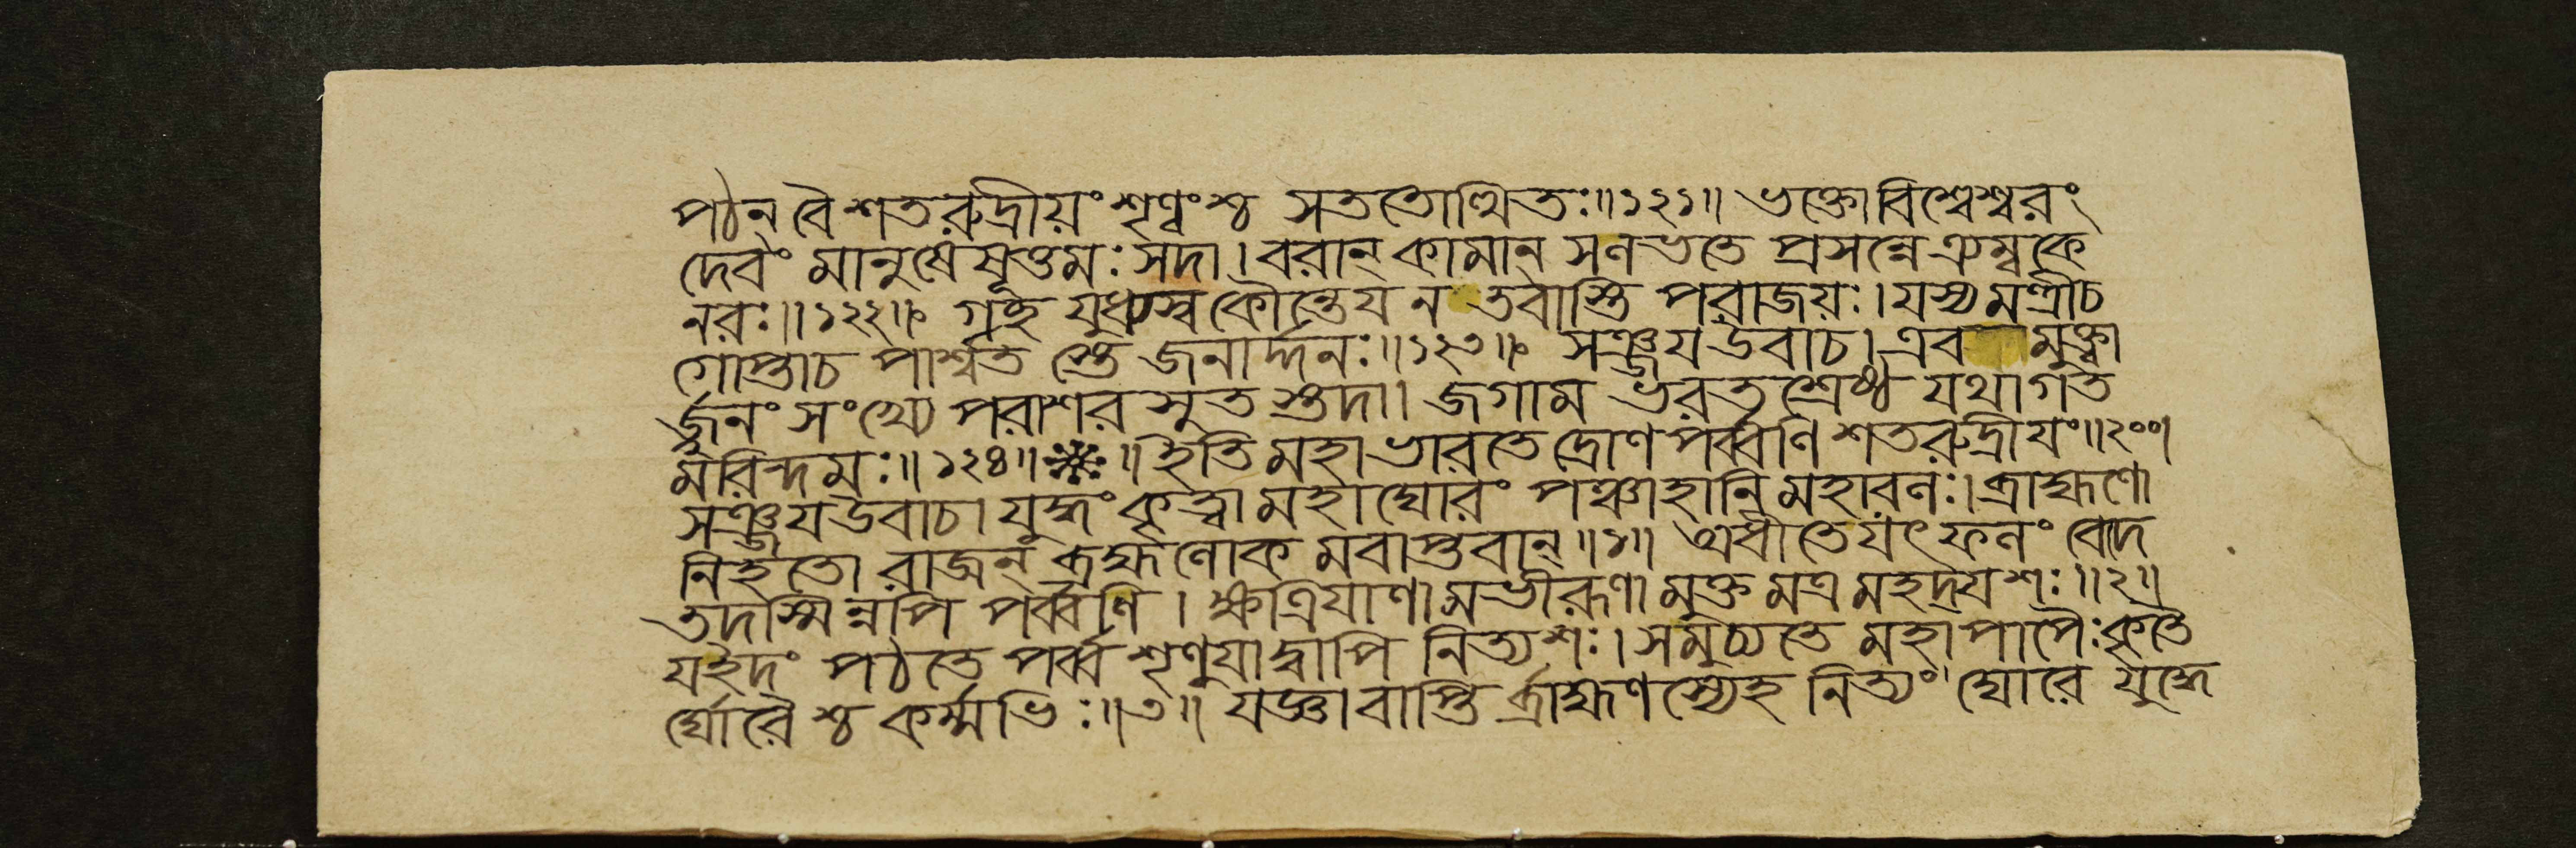 পঠন্ বৈ শতরুদ্রীয়ং শৃণ্বংশ্চ সততোত্থিতঃ॥১২১॥ ভক্তো বিশ্বেশ্বরং
দেবং মানুষেষূত্তমঃ সদা। বরান্ কামান্ স লভতে প্রসন্নে ত্র্যম্বকে
নরঃ॥১২২॥ গচ্ছ যুধ্যস্ব কৌন্তেয ন তবাস্তি পরাজয়ঃ। যস্য মন্ত্রী চ
গোপ্তা চ পার্শ্বত স্তে জনার্দ্দনঃ॥১২৩॥ সঞ্জয উবাচ। এব মুক্ত্বা
র্জুনং সংখ্যে পরাশর সুত স্তদা। জগাম ভরতশ্রেষ্ঠ যথাগত
মরিন্দমঃ॥১২৪॥ ॥ ইতি মহাভারতে দ্রোণপর্ব্বণি শতরুদ্রীযং॥২০০।
সঞ্জয উবাচ। যুদ্ধং কৃত্বা মহাঘোরং পঞ্চাহানি মহাবলঃ। ব্রাহ্মণো
নিহতো রাজন্ ব্রহ্মলোক মবাপ্তবান্॥১॥ অধীতে যৎ ফলং বেদে
তদস্মিন্নপি পর্ব্বণি। ক্ষত্রিযাণা মভীরূণা মুক্ত মত্র মহদ্যশঃ॥২॥
য ইদং পঠতে পর্ব্ব শৃণুযাদ্বাপি নিত্যশঃ। স মুচ্যতে মহাপাপৈঃ কৃতৈ
র্ঘোরৈশ্চ কর্ম্মভিঃ॥৩॥ যজ্ঞাবাপ্তি র্ব্রাহ্মণস্যেহ নিত্যং ঘোরে যুদ্ধে